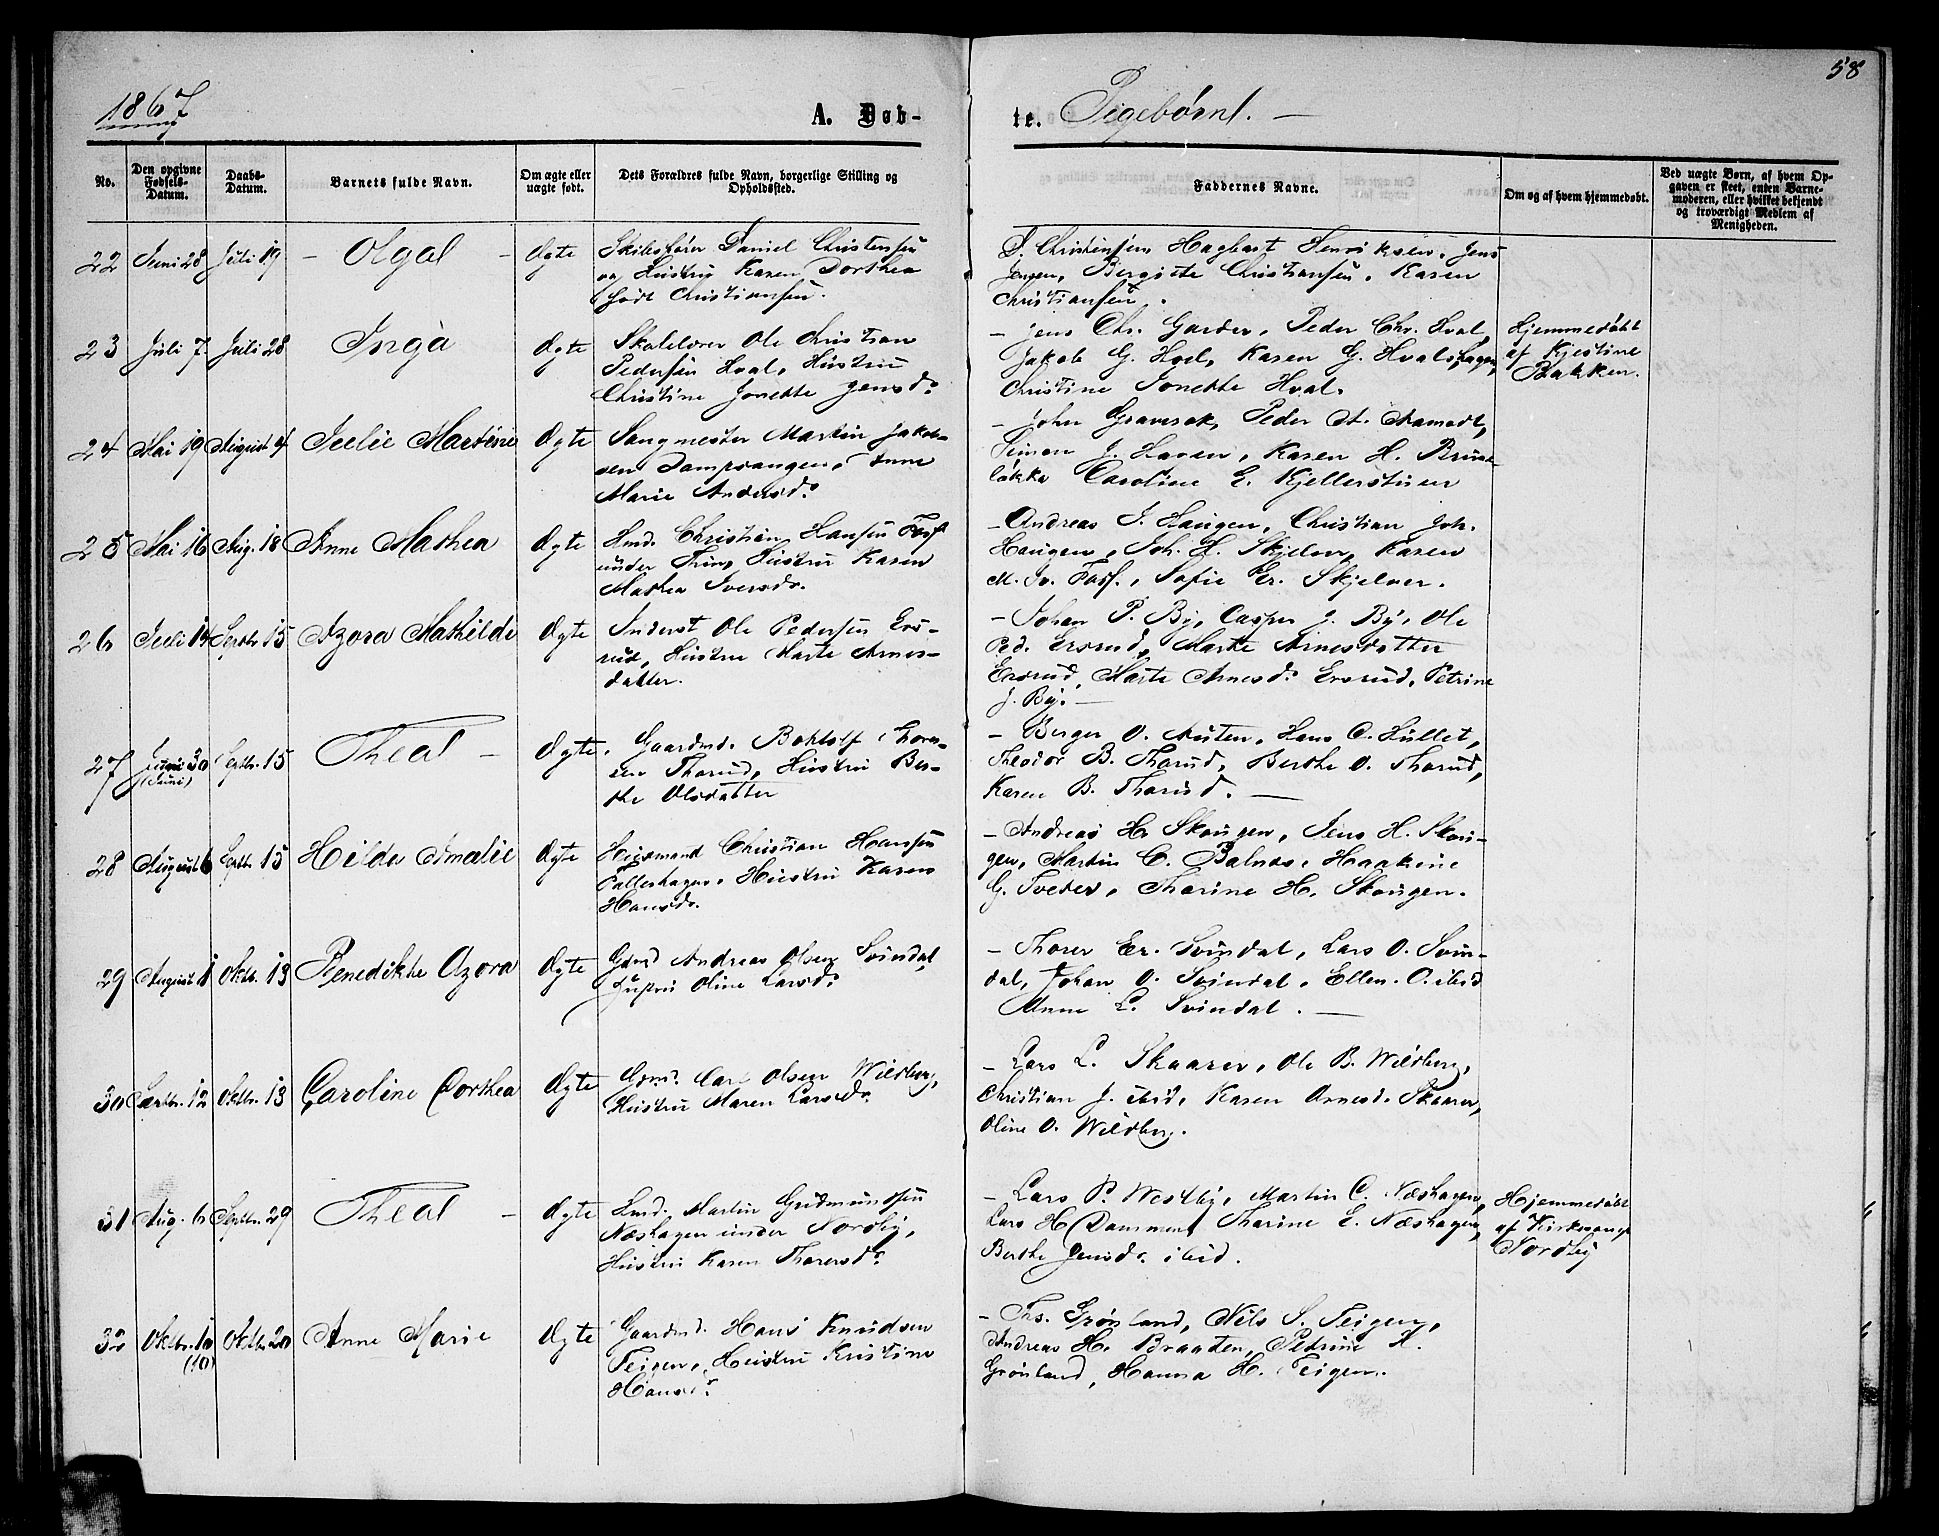 58
1867
A. Døb-
te. Pigebørn. —
No.
Den opgivne Fødsels-Datum.
Daabs-Datum.
Barnets fulde Navn.
Om ægte eller uægte født.
Dets Forældres fulde Navn, borgerlige Stilling og Opholdssted.
Faddernes Navne.
Om og af hvem hjemmedøbt.
Ved uægte Børn, af hvem Opgaven er skeet, enten Barnemoderen, eller hvilket bekjendt og troværdigt Medlem af Menigheden.
22 Juni 28 Juli 19 – Olga – Ægte
Skibsfører Daniel Christensen
og Hustru Karen Dorthea
født Christiansen.
D. Christensen Hagbart Henriksen, Jens
Jensen, Bergitte Christiansen, Karen
Christiansen.
23 Juli 7. Juli 28 Inga Ægte
Skolelærer Ole Christian
Pedersen Hval, Hustru
Christine Jonette Jensd.
– Jens Chr. Garder, Peder Chr. Hval,
Jakob G. Hvel, Karen G. Hvalshagen,
Christine Jonette Hval.
Hjemmedøbt
af Kjestine
Bakken.
24 Mai 19 August 4 Julie Martine Ægte
Saugmester Martin Jakob-
sen Dampsaugen, Anne
Marie Andersd.
– John Gravsok, Peder A. Aamodt,
Simon J. Haven, Karen H. Brune-
løkka Caroline E. Kjellerstuen
25 Mai 16 Aug. 18 Anne Mathea Ægte
Hmd. Christian Hansen Foss
under Thim, Hustru Karen
Mathea Iversd.
– Andreas J. Haugen, Christian Joh.
Haugen, Joh. H. Skjelver, Karen
M. Iv. Foss., Sofie Er. Skjelver.
26 Juli 14 Septbr. 15 Azora Mathilde Ægte
Inderst Ole Pedersen Ers-
rud, Hustru Marte Arnes-
datter.
– Johan P. By, Casper J. By, Ole
Ped. Ersrud, Marte Arnesdatter
Ersrud, Marte Arnesd. Ersrud, Petrine
J. By. —
27 30 (Juni) Septbr. 15 Thea – Ægte.
Gaardmd. Bottolf Thores-
sen Thorud, Hustru Ber-
the Olsdatter
– Berger O. Austen, Hans O. Hullet,
Theodor B. Thorud, Berthe O. Thorud,
Karen B. Thorud. —
28 August 6 Septbr. 15 Hilda Amalie Ægte
Huusmand Christian Hansen
Pallerhagen, Hustru Karen
Hansd.
– Andreas H. Skougen, Jens H. Skou-
gen, Martin C. Balnes, Haakine
G. Tveter, Thorine H. Skougen.
29 August 1 Oktb. 13 Benedikte Azora Ægte
Gdmd Andreas Olsen Svindal,
Hustru Oline Larsd.
– Thorer Er. Svindal, Lars O. Svin-
dal, Johan O. Svindal, Ellen O. ibid
Anne L. Svindal. —
30 Septbr. 12 Oktbr. 13 Caroline Dorthea Ægte
Gdmd. Carl Olsen Wildberg,
Hustru Maren Larsd.
– Lars L. Skaarer, Ole B. Wildberg,
Christian J. ibid, Karen Arnesd. Skaarer,
Oline O. Wildberg.
31 Aug. 6 Septbr. 29 Thea – Ægte
Hmd. Martin Gudmundsen
Næshagen under Nordby,
Hustru Karen Thoresd.
– Lars P. Westby, Martin C. Næshagen,
Lars H. Dammen, Thorine E. Næshagen,
Berthe Jensd. ibid.
Hjemmedøbt
af Kirkesanger
Nordby
32 Oktbr. 10 (10) Oktbr. 20 Anne Marie Ægte
Gaardmd. Hans Knudsen
Teigen, Hustru Kristine
Hansd.
– Ths. Grønland, Nils S. Teigen,
Andreas H. Braaten, Petrine A.
Grønland, Hanna H. Teigen.